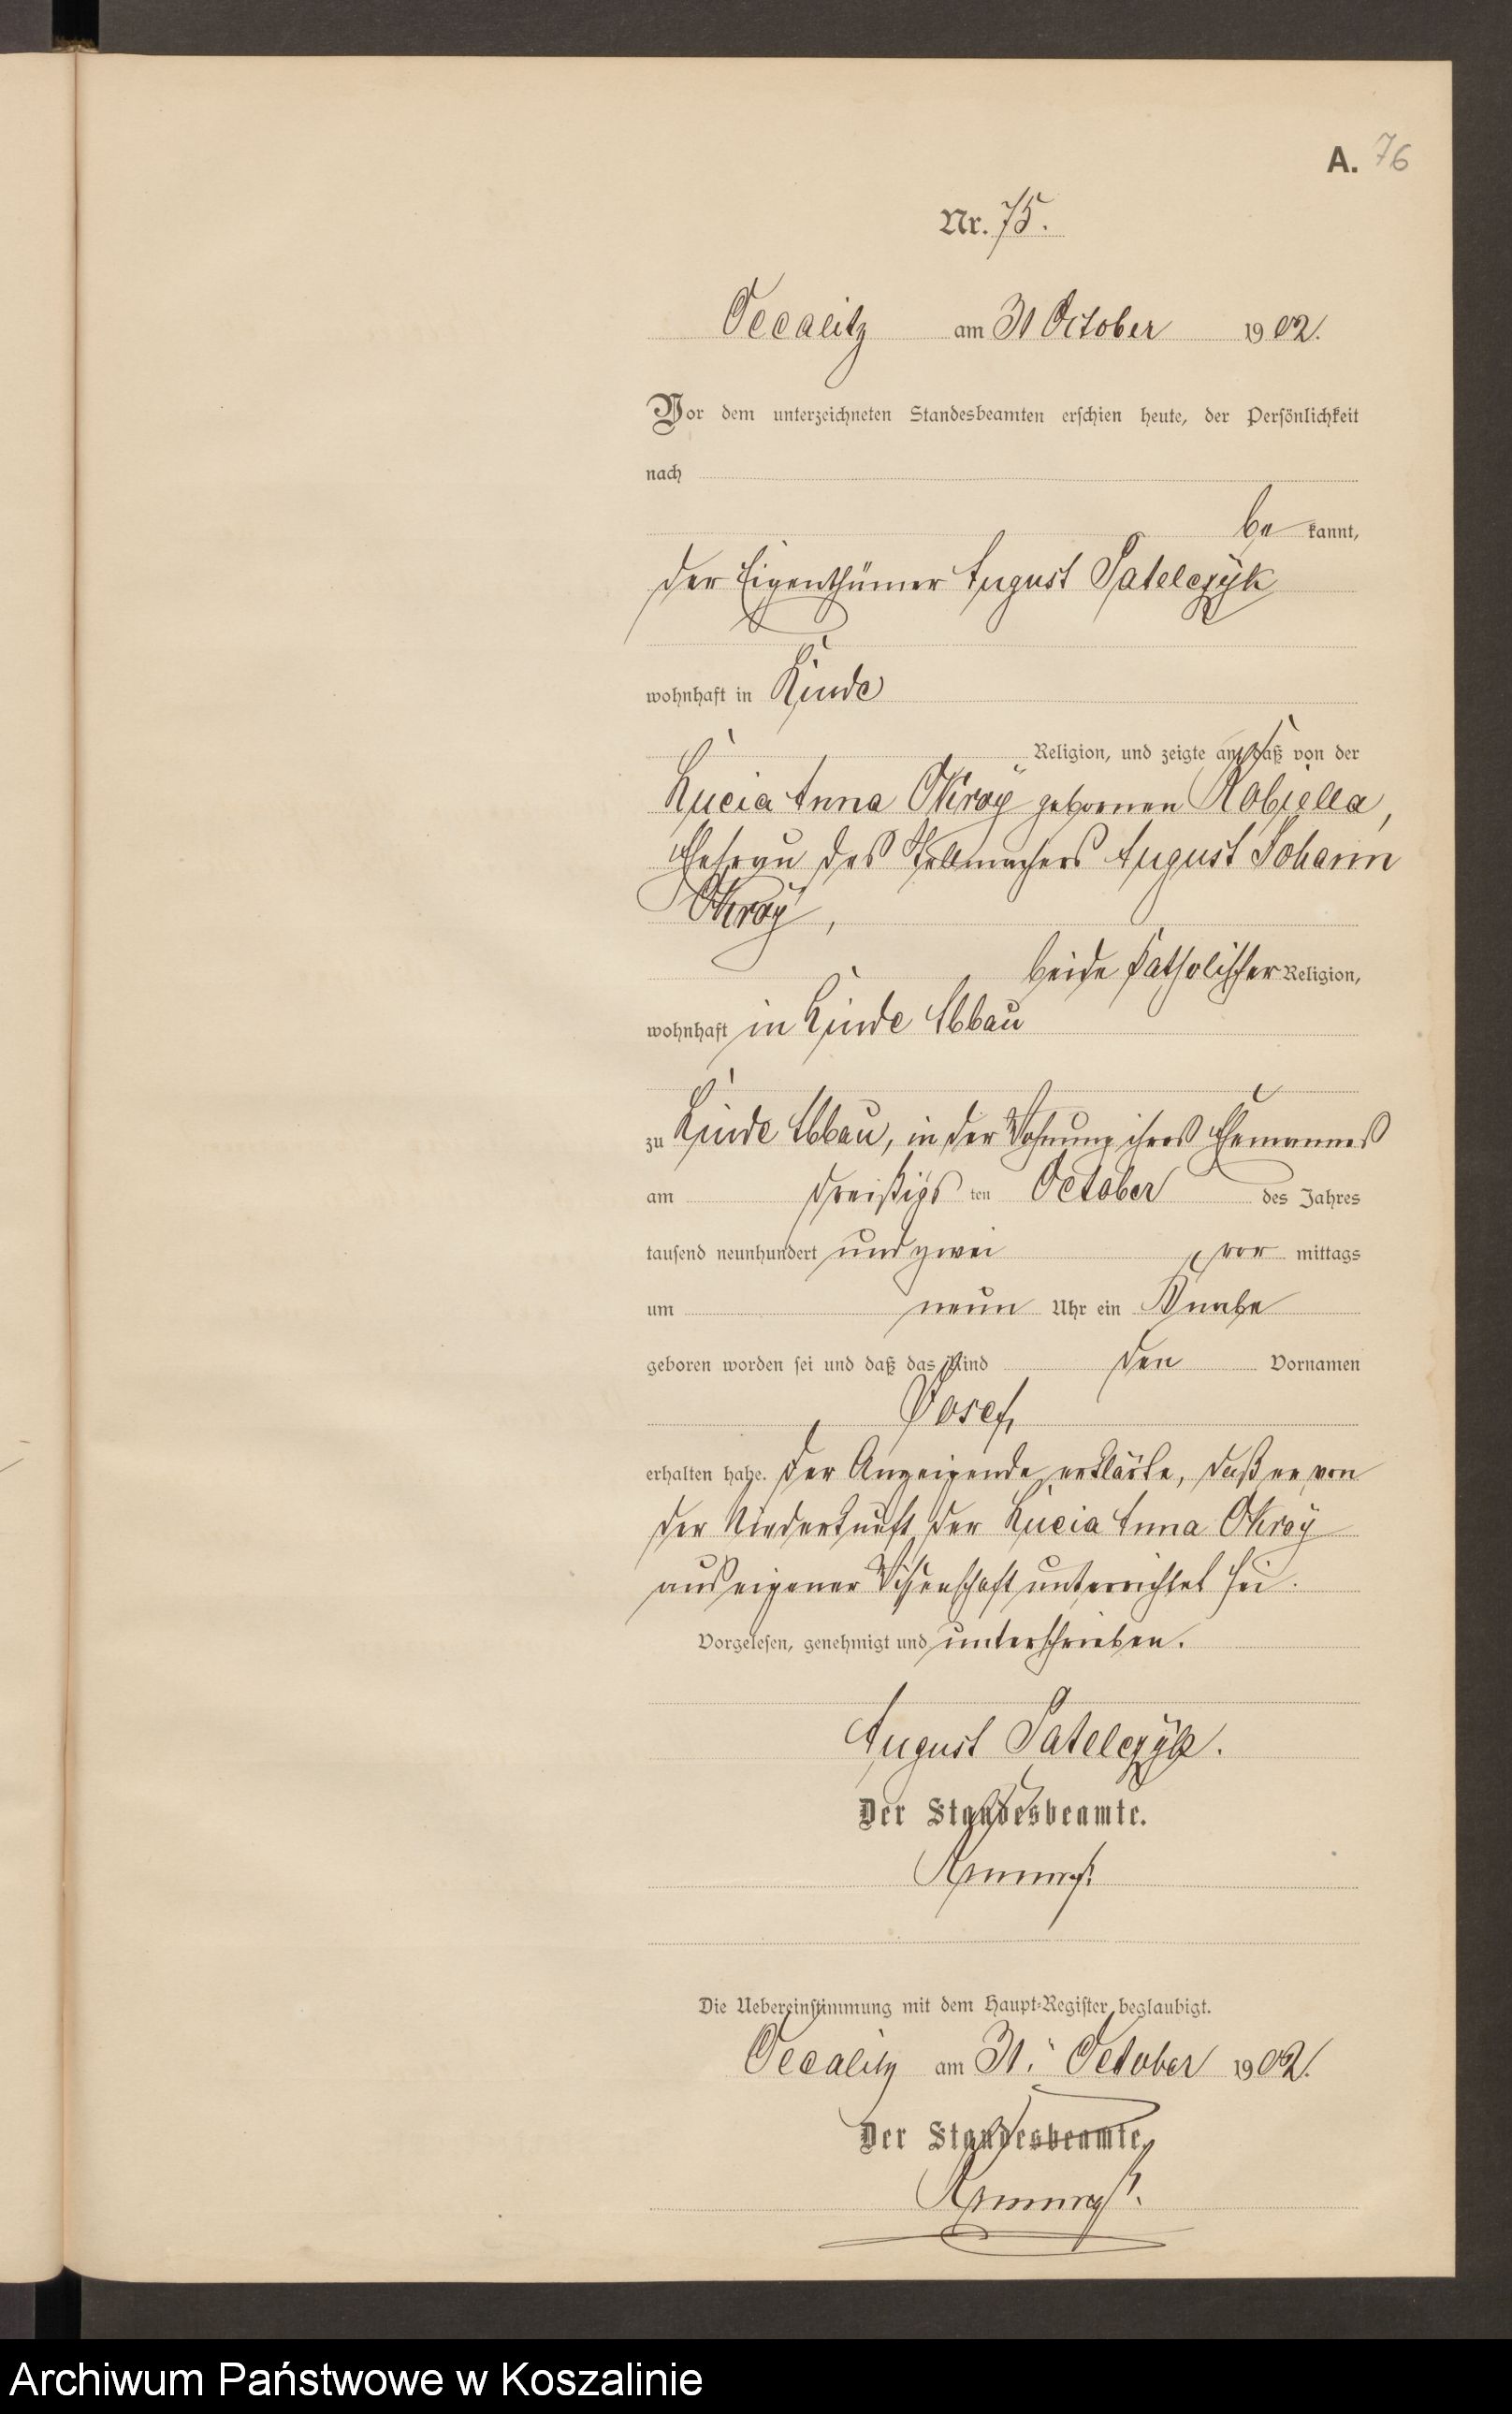 A. 76
Nr. 75.
Occalitz am 31 October 1902.
Vor dem unterzeichneten Standesbeamten erschien heute, der Persönlichkeit
nach
be kannt,
der Eigenthümer August Patelczÿk
wohnhaft in Linde
Religion, und zeigte an, daß von der
Lucia Anna Okroÿ geborenen Kobiella,
Ehefrau des Stellmachers August Johann
Okroÿ,
beide katholischer Religion,
wohnhaft in Linde Abbau
zu Linde Abbau, in der Wohnung ihres Ehemannes
am dreißigs ten October des Jahres
tausend neunhundert und zwei vor mittags
um neun Uhr ein Knabe
geboren worden sei und daß das Kind den Vornamen
Josef
erhalten habe. Der Anzeigende erklärte, daß er von
der Niederkunft der Lucia Anna Okroÿ
aus eigener Wissenschaft unterrichtet sei.
Vorgelesen, genehmigt und unterschrieben.
August Patelczÿk.
Der Standesbeamte.
Die Uebereinstimmung mit dem Haupt-Register beglaubigt.
Occalitz am 31. October 1902.
Der Standesbeamte.
Archiwum Państwowe w Koszalinie